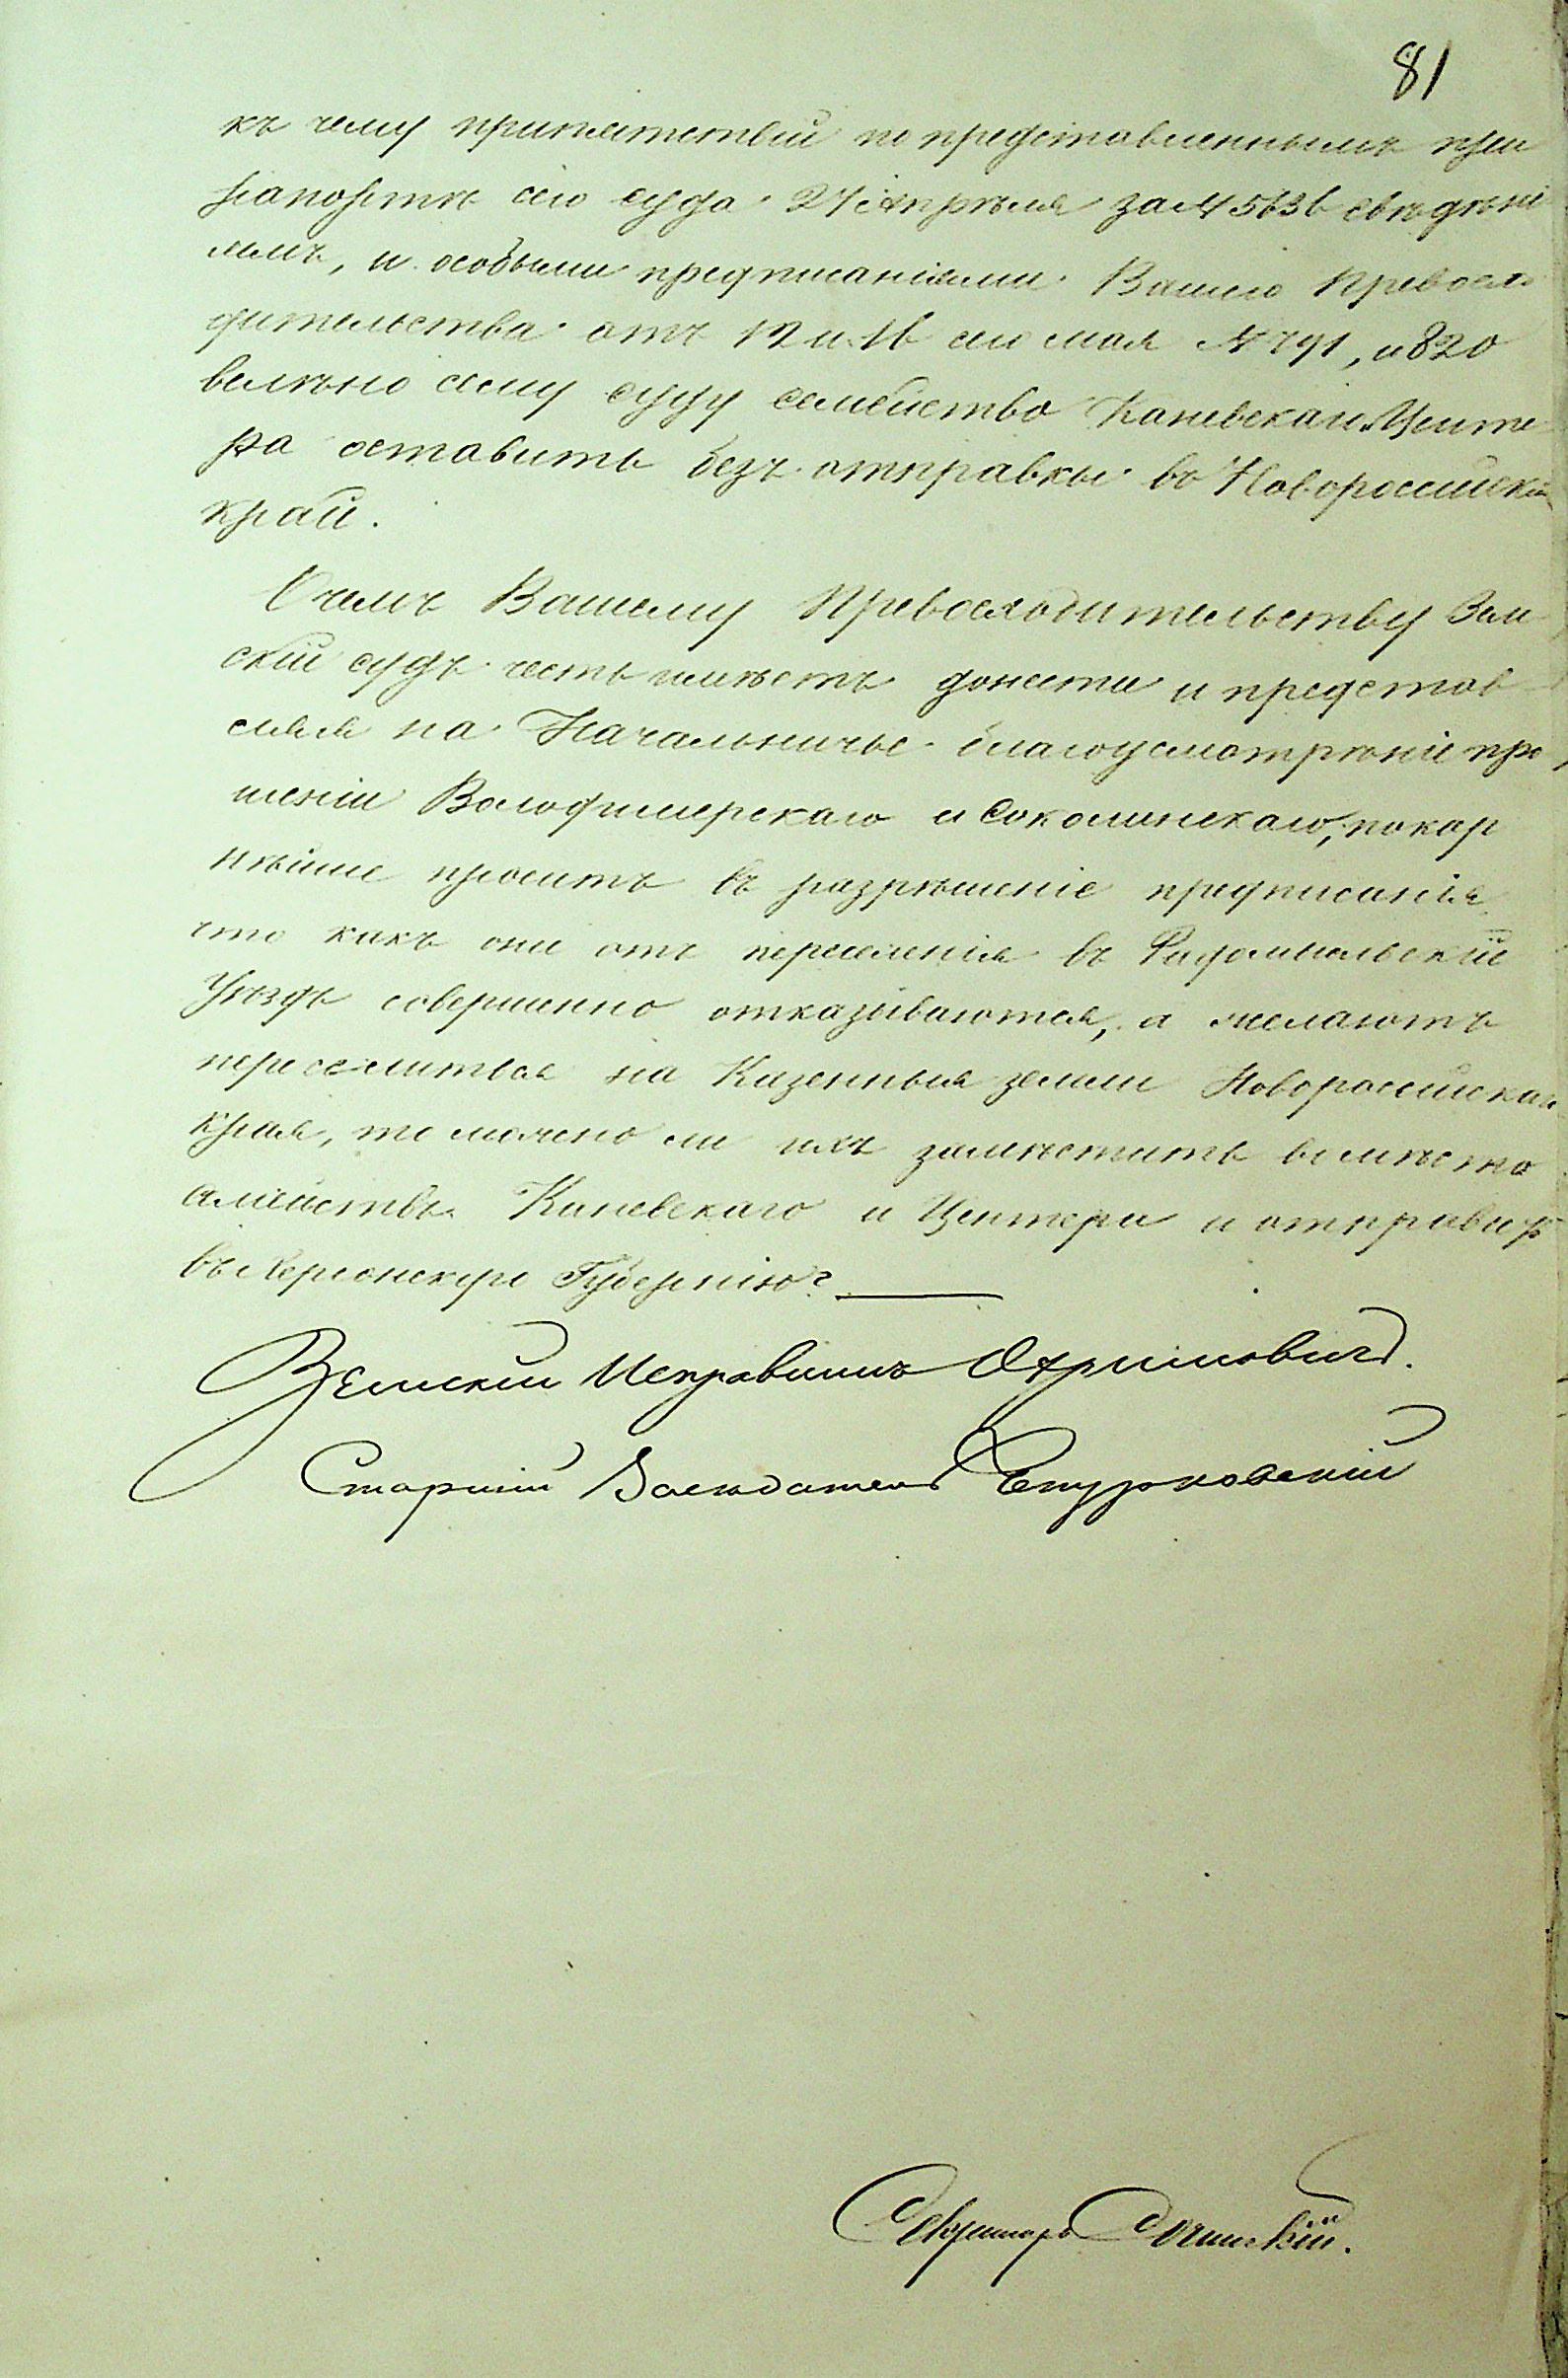 81
къ чему припятствій по представленнымъ при
рапортѣ сего суда 27 апрѣля за № 5636 свѣдѣні
ямъ, и особыми предписаніями Вашего Превосхо
дительства отъ 12 и 16 сего мая № 791, и 820
велѣно сему суду семейство Каневскаго и Центе
ра оставить безъ отправки въ Новороссійскій
край.
О чемъ Вашему Превосходительству Зем
скій судъ честь имѣетъ донести и представ
ляя на Начальничье благоусмотрѣніе про
шеніи Володимерскаго и Соколинскаго, покор
нѣйше проситъ въ разрѣшеніе предписанія
что какъ они отъ переселенія въ Радомысльскій
Уѣздъ совершенно отказываются, а желаютъ
переселиться на Казенныя земли Новороссійскаго
Края, то можно ли ихъ замѣстить вмѣсто
семействъ Каневскаго и Центера и отправить
въ Херсонскую Губернію?
Земскій Исправникъ
Старшій Засѣдатель
Секретарь